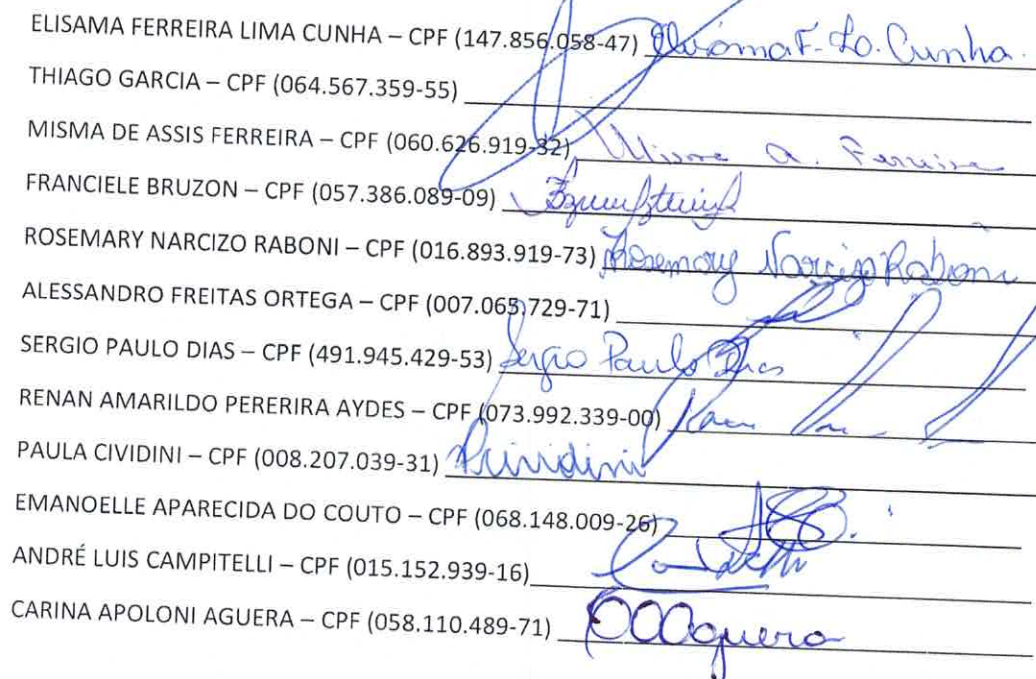 ELISAMA FERREIRA LIMA CUNHA – CPF (147.856.058-47) Elisama F. Lo. Cunha.
THIAGO GARCIA – CPF (064.567.359-55)
MISMA DE ASSIS FERREIRA – CPF (060.626.919-32) Misma A. Ferreira
FRANCIELE BRUZON – CPF (057.386.089-09)
ROSEMARY NARCIZO RABONI – CPF (016.893.919-73) Rosemary Narcizo Raboni
ALESSANDRO FREITAS ORTEGA – CPF (007.065.729-71)
SERGIO PAULO DIAS – CPF (491.945.429-53) Sergio Paulo Dias
RENAN AMARILDO PERERIRA AYDES – CPF (073.992.339-00)
PAULA CIVIDINI – CPF (008.207.039-31) PCividini
EMANOELLE APARECIDA DO COUTO – CPF (068.148.009-26)
ANDRÉ LUIS CAMPITELLI – CPF (015.152.939-16)
CARINA APOLONI AGUERA – CPF (058.110.489-71) Aguera